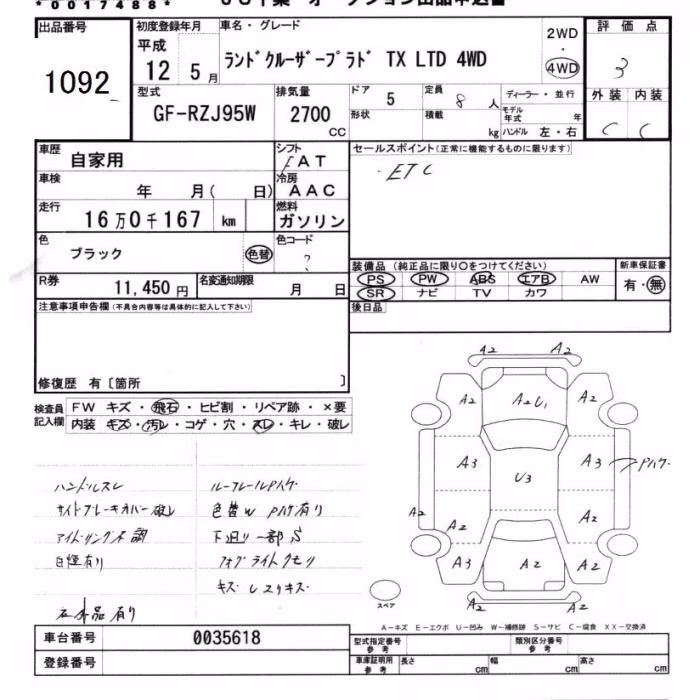 *0017488*
出品番号
1092
初度登録年月
平成
12 5月
車名・グレード
ランドクルーザープラド TX LTD 4WD
2WD
・
4WD
評価点
3
外装 内装
C C
型式
GF-RZJ95W
排気量
2700
CC
ドア
5
定員
8 人
形状
積載
kg
ディーラー・並行
モデル年式 年
ハンドル 左・右
車歴
自家用
シフト
FAT
セールスポイント(正常に機能するものに限ります)
・ETC
車検
年 月( 日)
冷房
AAC
走行
16万0千167 km
燃料
ガソリン
色
ブラック
色替
色コード
?
装備品(純正品に限り○をつけてください)
PS PW ABS エアB AW
SR ナビ TV カワ
新車保証書
有・無
R券
11,450円
名変通知期限
月 日
後日品
注意事項申告欄(不具合内容等は具体的に記入して下さい)
修復歴 有〔箇所 〕
検査員記入欄
FW キズ・飛石・ヒビ割・リペア跡・×要
内装 キズ・汚レ・コゲ・穴・スレ・キレ・破レ
ハンドルスレ
サイドブレーキカバー破レ
アイドリング不調
白煙有り
ルーフレールPハゲ
色替W Pハゲ有り
下廻り一部S
フォグライトクモリ
キズ
有り
A2 A2
A2 A2U1 A2
A3 U3 A3 Pハゲ
A2 A2 A2
A3 A2 A2
A2 A2
スペア
A-キズ E-エクボ U-凹み W-補修跡 S-サビ C-腐食 XX-交換済
車台番号
0035618
登録番号
型式指定番号
参考
類別区分番号
参考
車庫証明用
参考
長さ cm
幅 cm
高さ cm